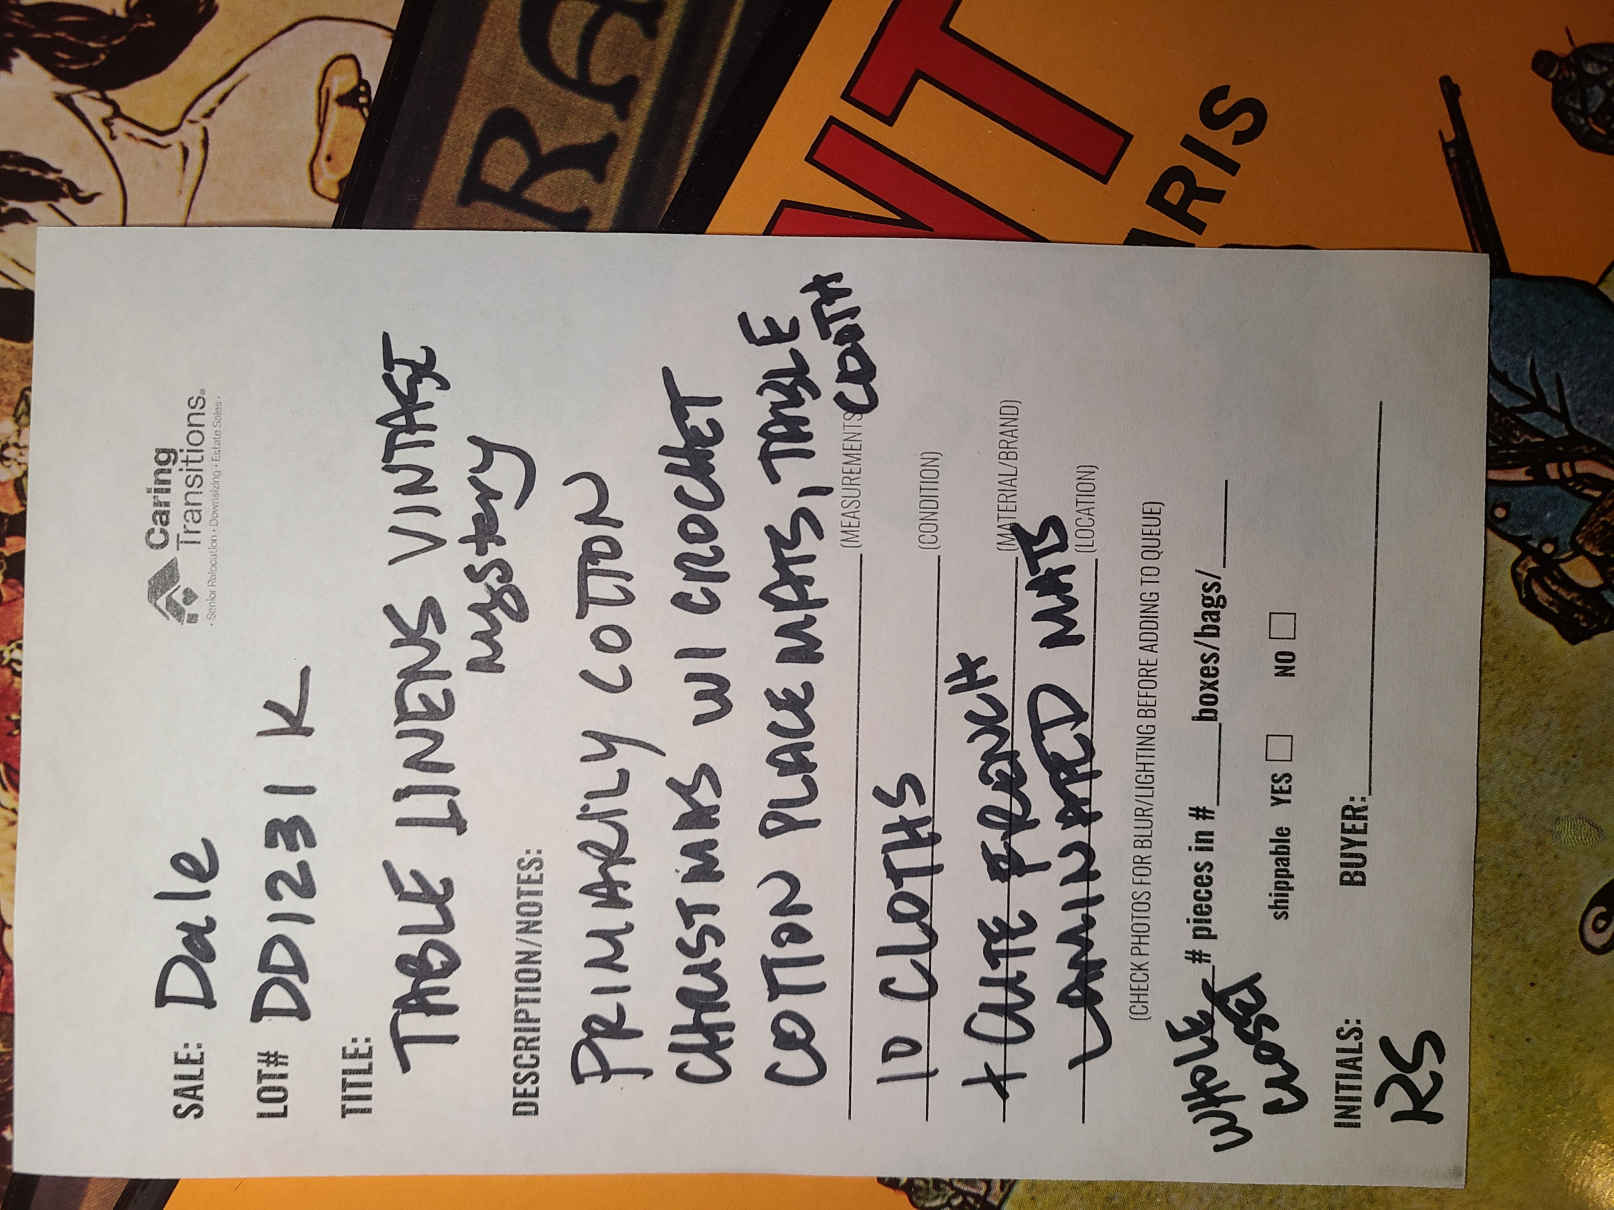 Caring
Transitions®
• Senior Relocation • Downsizing • Estate Sales •
SALE: Dale
LOT# DD1231 K
TITLE:
TABLE LINENS VINTAGE
MYSTERY
DESCRIPTION/NOTES:
PRIMARILY COTTON
CHRISTMAS W/ CROCHET
COTTON PLACE MATS, TABLE
CLOTH
(MEASUREMENTS
10 CLOTHS (CONDITION)
+ CUTE FRENCH (MATERIAL/BRAND)
LAMINATED MATS (LOCATION)
(CHECK PHOTOS FOR BLUR/LIGHTING BEFORE ADDING TO QUEUE)
WHOLE # pieces in # boxes/bags/
CLOSET
shippable YES NO
INITIALS: BUYER:
RS
RA
NT
ARIS